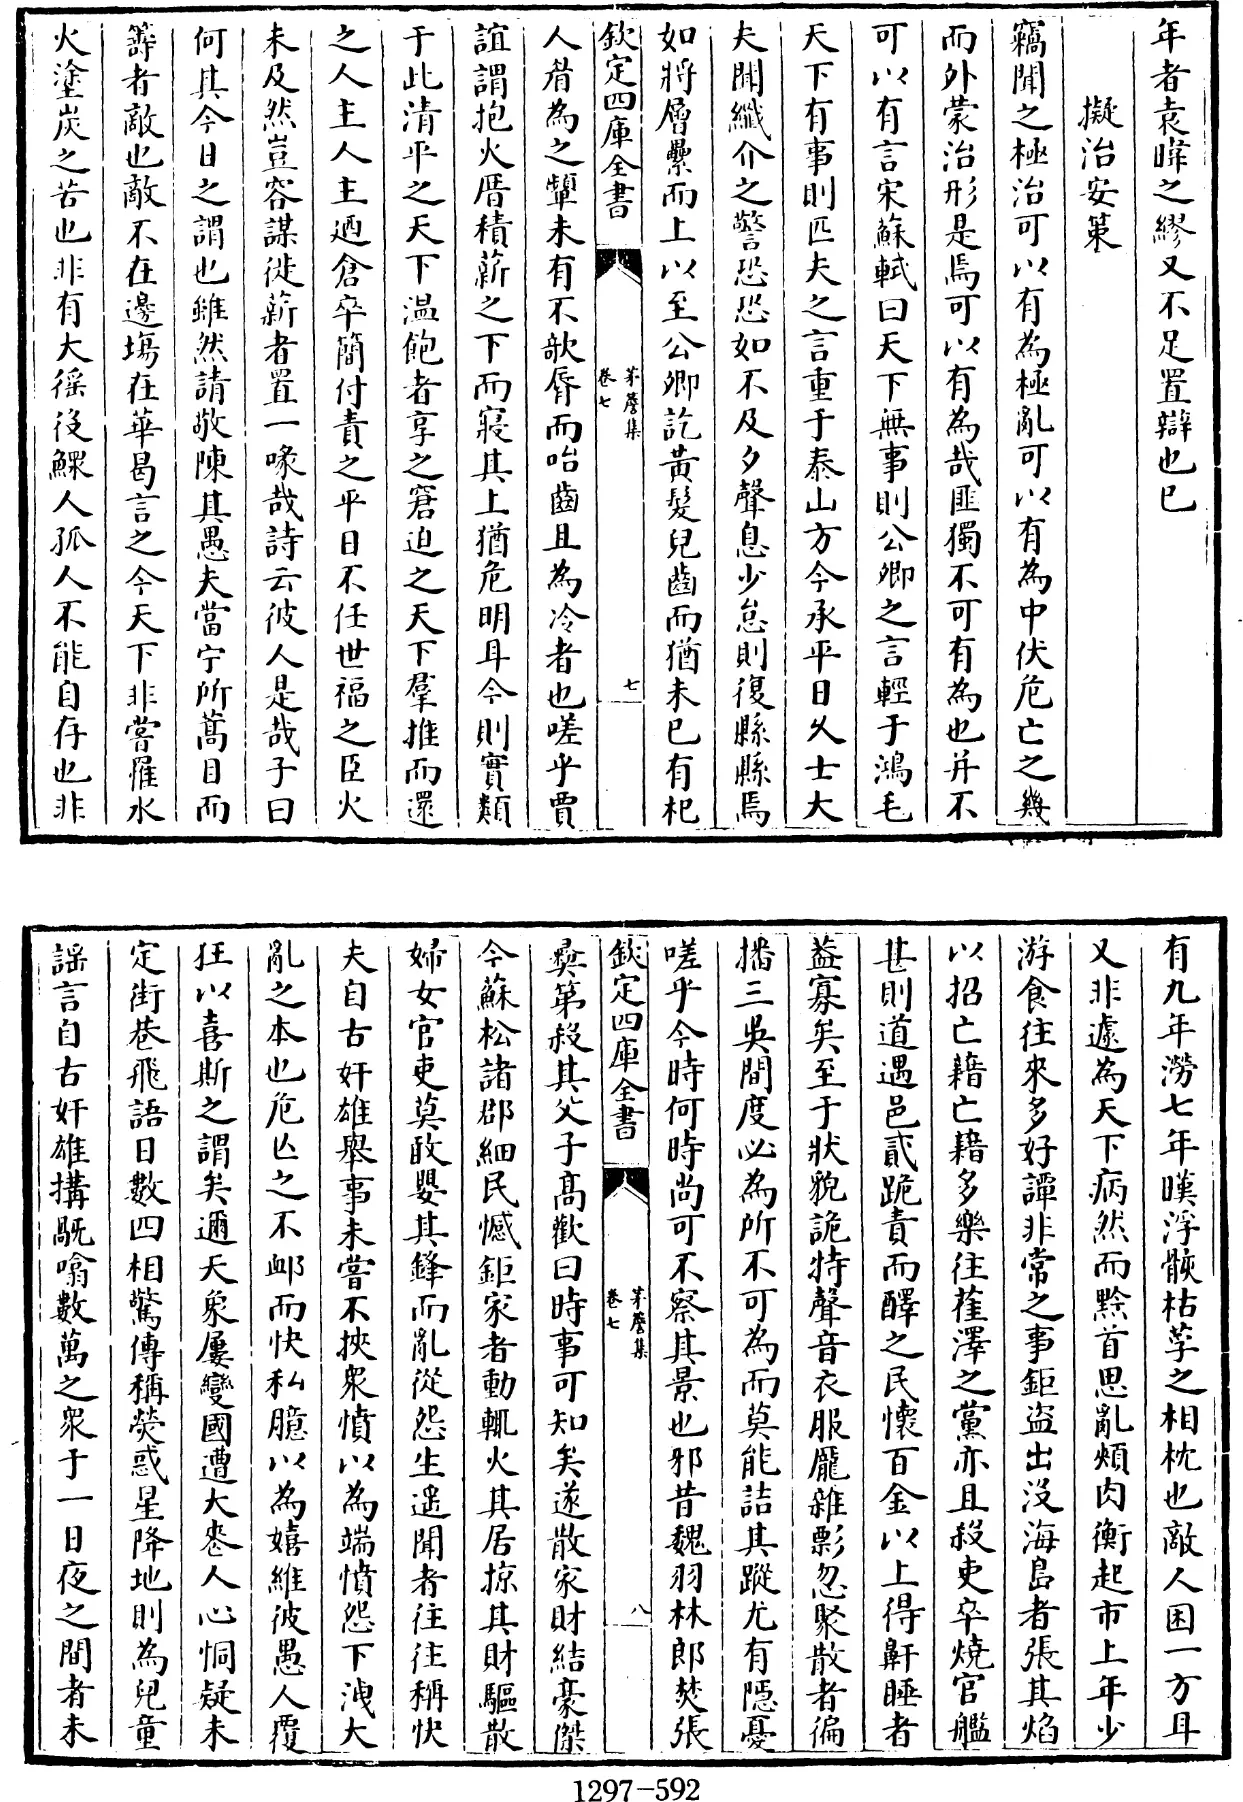 年者袁暐之繆又不足置辯也已
擬治安策
竊聞之極治可以有為極亂可以有為中伏危亡之幾
而外蒙治形是焉可以有為哉匪獨不可有為也并不
可以有言宋蘇軾曰天下無事則公卿之言輕于鴻毛
天下有事則匹夫之言重于泰山方今承平日久士大
夫聞纖介之警恐恐如不及夕聲息少怠則復緜緜焉
如將層纍而上以至公卿訖黃髮兒齒而猶未已有杞
人者為之顰未有不欷脣而咍齒且為冷者也嗟乎賈
誼謂抱火厝積薪之下而寢其上猶危明耳今則實類
于此清平之天下溫飽者享之窘迫之天下羣推而還
之人主人主迺倉卒簡付責之平日不任世福之臣火
未及然豈容謀徙薪者置一喙哉詩云彼人是哉子曰
何其今日之謂也雖然請敬陳其愚夫當宁所蒿目而
籌者敵也敵不在邊塲在華曷言之今天下非嘗罹水
火塗炭之苦也非有大徭役鰥人孤人不能自存也非
欽定四庫全書
茅簷集
卷七
七
有九年澇七年暵浮骸枯莩之相枕也敵人困一方耳
又非遽為天下病然而黔首思亂頰肉衡起市上年少
游食往來多好譚非常之事鉅盜出沒海島者張其焰
以招亡藉亡藉多樂往萑澤之黨亦且殺吏卒燒官艦
甚則道遇邑貳跪責而釋之民懷百金以上得鼾睡者
益寡矣至于狀貌詭特聲音衣服龐雜影忽聚散者徧
播三吳間度必為所不可為而莫能詰其蹤尤有隱憂
嗟乎今時何時尚可不察其景也邪昔魏羽林郎焚張
彝第殺其父子高歡曰時事可知矣遂散家財結豪傑
今蘇松諸郡細民憾鉅家者動輒火其居掠其財驅散
婦女官吏莫敢嬰其鋒而亂從怨生遥聞者往往稱快
夫自古奸雄舉事未嘗不挾衆憤以為端憤怨下洩大
亂之本也危亡之不卹而快私臆以為嬉維彼愚人覆
狂以喜斯之謂矣邇天象屢變國遭大喪人心恫疑未
定街巷飛語日數四相驚傳稱熒惑星降地則為兒童
謡言自古奸雄搆釁噏數萬之衆于一日夜之間者未
欽定四庫全書
茅簷集
卷七
八
1297-592